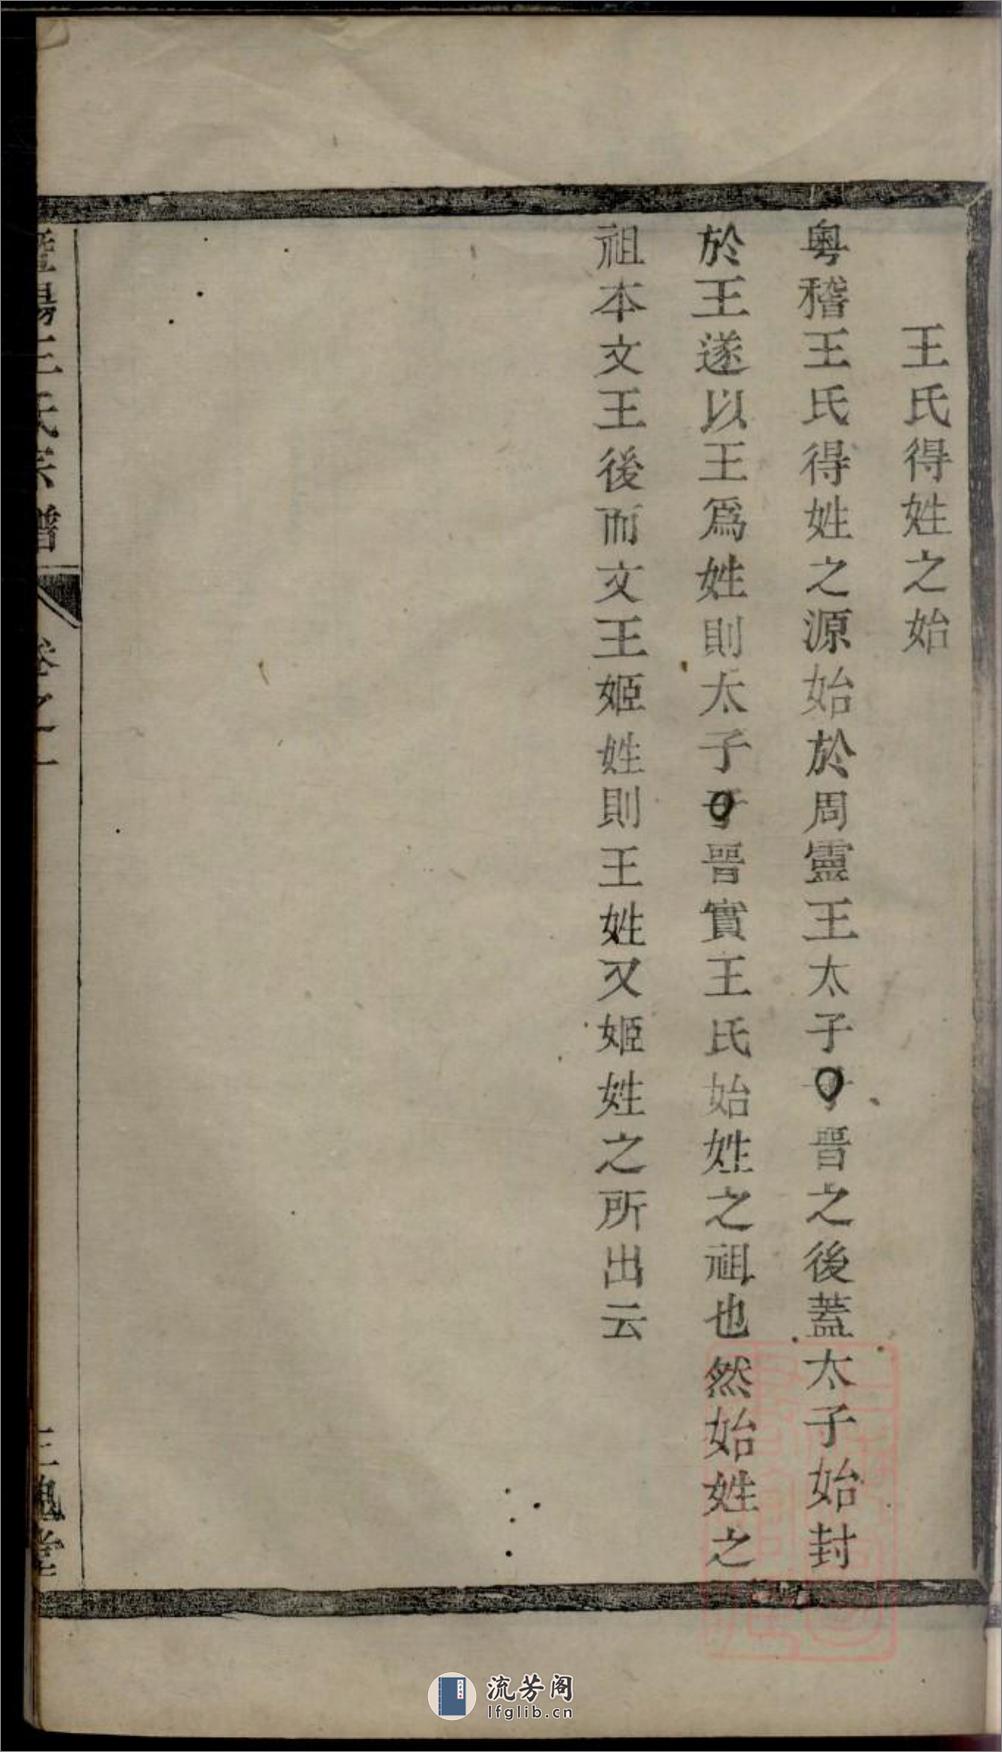 王氏得姓之始
粵稽王氏得姓之源始於周靈王太子子晉之後蓋太子始封
於王遂以王爲姓則太子子晉實王氏始姓之祖也然始姓之
祖本文王後而文王姬姓則王姓又姬姓之所出云
暨陽王氏宗譜
卷之一
三槐堂
流芳阁
lfglib.cn